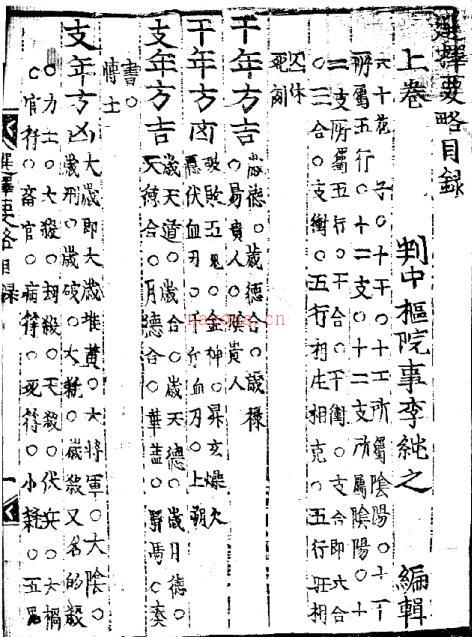 選擇要略目錄
上卷 判中樞院事李純之 編輯
六十花子○十干○十干所屬陰陽○十干
所屬五行○十二支○十二支所屬陰陽○十
二支所屬五行○干合○干衝○支合即六合
○三合○支衝○五行相生相克○五行旺相
囚休
死刻
干年方吉 歲德○歲德合○歲祿
○易貴人○陰貴人
干年方凶 破敗五鬼○金神○昇玄燥火
隱伏血刃○千斤血刃○上朔
支年方吉 歲天道○歲合○歲天德○歲月德○
天德合○月德合○華蓋○驛馬○奏
書○
博士
支年方凶 大歲即大歲堆黃○大將軍○大陰○
歲刑○歲破○大耗○歲殺又名的殺
○力士○大殺○劫殺○天殺○伏兵○大禍
○官符○畜官○病符○死符○小耗○五鬼
選擇要略目錄 一